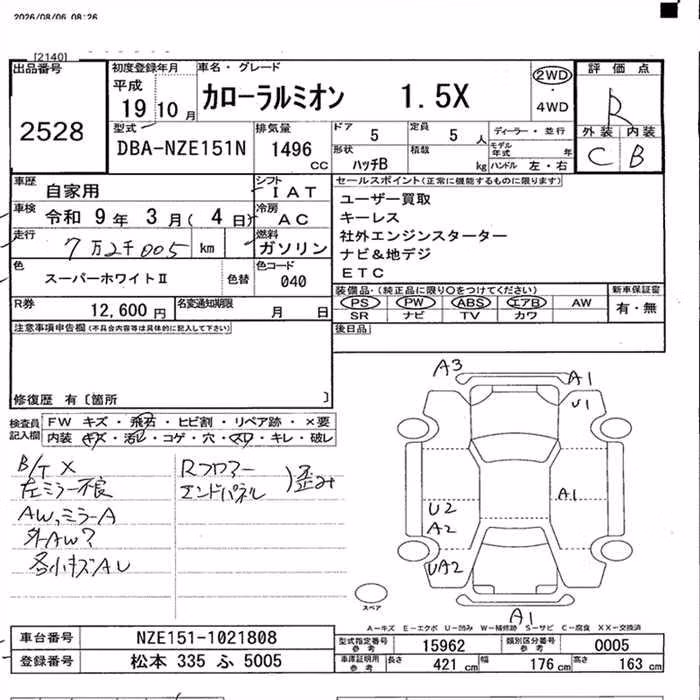 2026/08/06 08:26
[2140]
出品番号
2528
初度登録年月
平成
19 10 月
車名・グレード
カローラルミオン 1.5X
2WD
・
4WD
評価点
R
外装 内装
C B
型式
DBA-NZE151N
排気量
1496 CC
ドア 5
定員 5 人
ディーラー・並行
形状 ハッチB
積載 kg
モデル年式 年
ハンドル 左・右
車歴
自家用
シフト
IAT
車検
令和 9 年 3 月 ( 4 日)
冷房
AC
走行
7万2千005 km
燃料
ガソリン
色
スーパーホワイトⅡ
色替
色コード
040
R券
12,600 円
名変通知期限
月 日
セールスポイント(正常に機能するものに限ります)
ユーザー買取
キーレス
社外エンジンスターター
ナビ&地デジ
ETC
装備品・(純正品に限り○をつけてください)
PS PW ABS エアB AW
SR ナビ TV カワ
新車保証書
有・無
後日品
注意事項申告欄(不具合内容等は具体的に記入して下さい)
修復歴 有〔箇所 〕
検査員記入欄
FW キズ・飛石・ヒビ割・リペア跡・×要
内装 キズ・汚レ・コゲ・穴・スレ・キレ・破レ
B/T X
左ミラー不良
AW,ミラーA
外AW?
各小キズAU
Rフロアー
エンドパネル
)歪み
A3
A1
U1
A1
U2
A2
UA2
A1
スペア
A−キズ E−エクボ U−凹み W−補修跡 S−サビ C−腐食 XX−交換済
車台番号 NZE151-1021808
登録番号 松本 335 ふ 5005
型式指定番号 参考 15962
類別区分番号 参考 0005
車庫証明用 参考 長さ 421 cm 幅 176 cm 高さ 163 cm